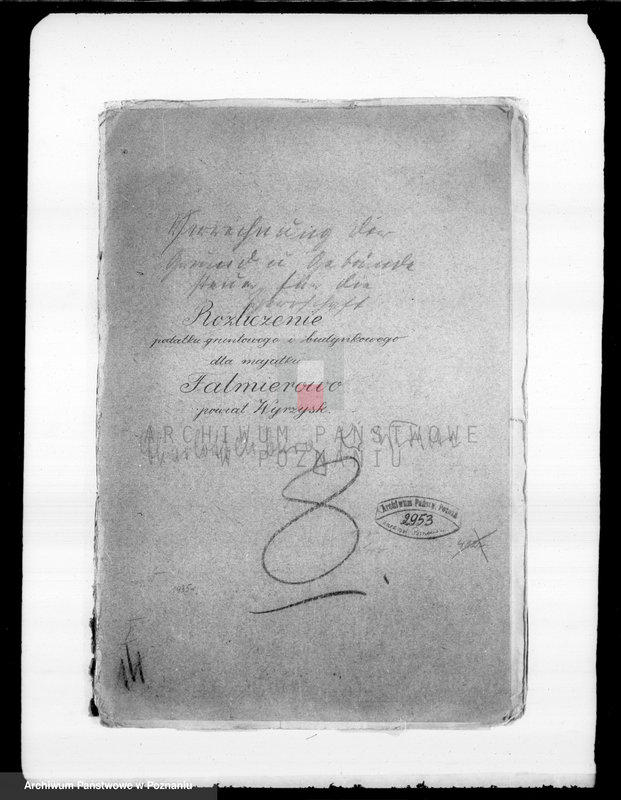 Verrechnung der
Grund u Gebäude
steuer für die
Herrschaft
Rozliczenie
podatku gruntowego i budynkowego
dla majątku
Falmierowo
powiat Wyrzysk.
ARCHIWUM PAŃSTWOWE
W POZNANIU
8
Archiwum Państw. Poznań
2953
1935r.
I
14
Archiwum Państwowe w Poznaniu